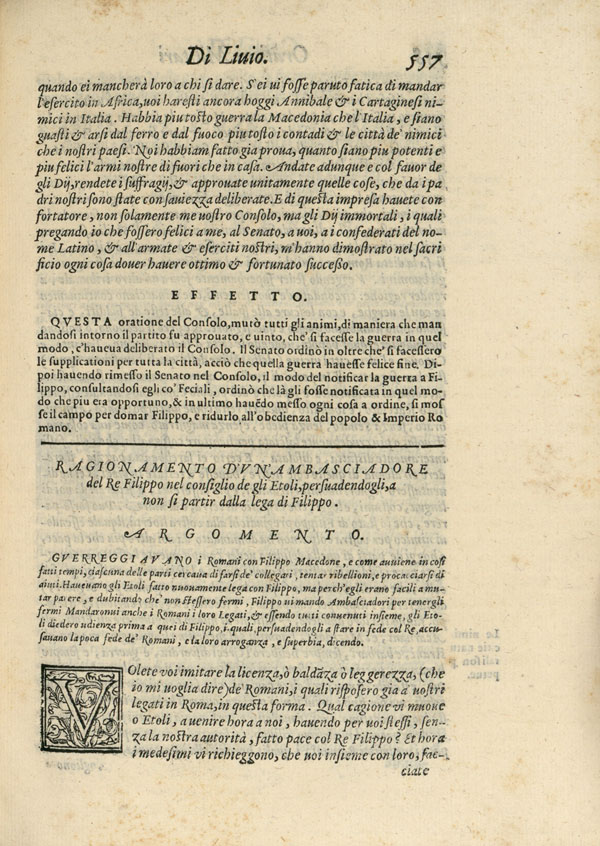 Di Liuio. 557
quando ei mancherà loro a chi si dare. S'ei ui fosse paruto fatica di mandar
l'esercito in Africa, uoi haresti ancora hoggi Annibale & i Cartaginesi ni-
mici in Italia. Habbia piu tosto guerra la Macedonia che l'Italia, e siano
guasti & arsi dal ferro e dal fuoco piu tosto i contadi & le città de' nimici
che i nostri paesi. Noi habbiam fatto gia proua, quanto siano piu potenti e
piu felici l'armi nostre di fuori che in casa. Andate adunque e col fauor de
gli Dij, rendete i suffragij, & approuate unitamente quelle cose, che da i pa
dri nostri sono state con sauiezza deliberate. E di questa impresa hauete con
fortatore, non solamente me uostro Consolo, ma gli Dij immortali, i quali
pregando io che fossero felici a me, al Senato, a uoi, a i confederati del no-
me Latino, & all'armate & eserciti nostri, m'hanno dimostrato nel sacri
ficio ogni cosa douer hauere ottimo & fortunato successo.
EFFETTO.
QVESTA oratione del Consolo, mutò tutti gli animi, di maniera che man
dandosi intorno il partito fu approuato, e uinto, che' si facesse la guerra in quel
modo, c'haueua deliberato il Consolo. Il Senato ordinò in oltre che' si facessero
le supplicationi per tutta la città, acciò che quella guerra hauesse felice fine. Di-
poi hauendo rimesso il Senato nel Consolo, il modo del notificar la guerra a Fi-
lippo, consultandosi egli co' Feciali, ordinò che là gli fosse notificata in quel mo-
do che piu era opportuno, & in ultimo hauēdo messo ogni cosa a ordine, si mos
se il campo per domar Filippo, e ridurlo all'obedienza del popolo & Imperio Ro
mano.
RAGIONAMENTO D'VN'AMBASCIADORE
del Re Filippo nel consiglio de gli Etoli, persuadendogli, a
non si partir dalla lega di Filippo.
ARGOMENTO.
GVERREGGIAVANO i Romani con Filippo Macedone, e come auuiene in cosi
fatti tempi, ciascuna delle parti cercaua di farsi de' collegati, tentar ribellioni, e procacciarsi di
aiuti. Haueuano gli Etoli fatto nuouamente lega con Filippo, ma perch'egli erano facili a mu-
tar parere, e dubitando che' non stessero fermi, Filippo ui mando Ambasciadori per tenergli
fermi Mandaronui anche i Romani i loro Legati, & essendo tutti conuenuti insieme, gli Eto-
li diedero udienza prima a quei di Filippo, i quali, persuadendogli a stare in fede col Re, accu-
sauano la poca fede de' Romani, e la loro arroganza, e superbia, dicendo.
VOlete voi imitare la licenza, ò baldāza ò leggerezza, (che
io mi uoglia dire) de' Romani, i quali risposero gia a' uostri
legati in Roma, in questa forma. Qual cagione vi muoue
o Etoli, a uenire hora a noi, hauendo per uoi stessi, sen-
za la nostra autorità, fatto pace col Re Filippo? Et hora
i medesimi vi richieggono, che uoi insieme con loro, fac-
ciate